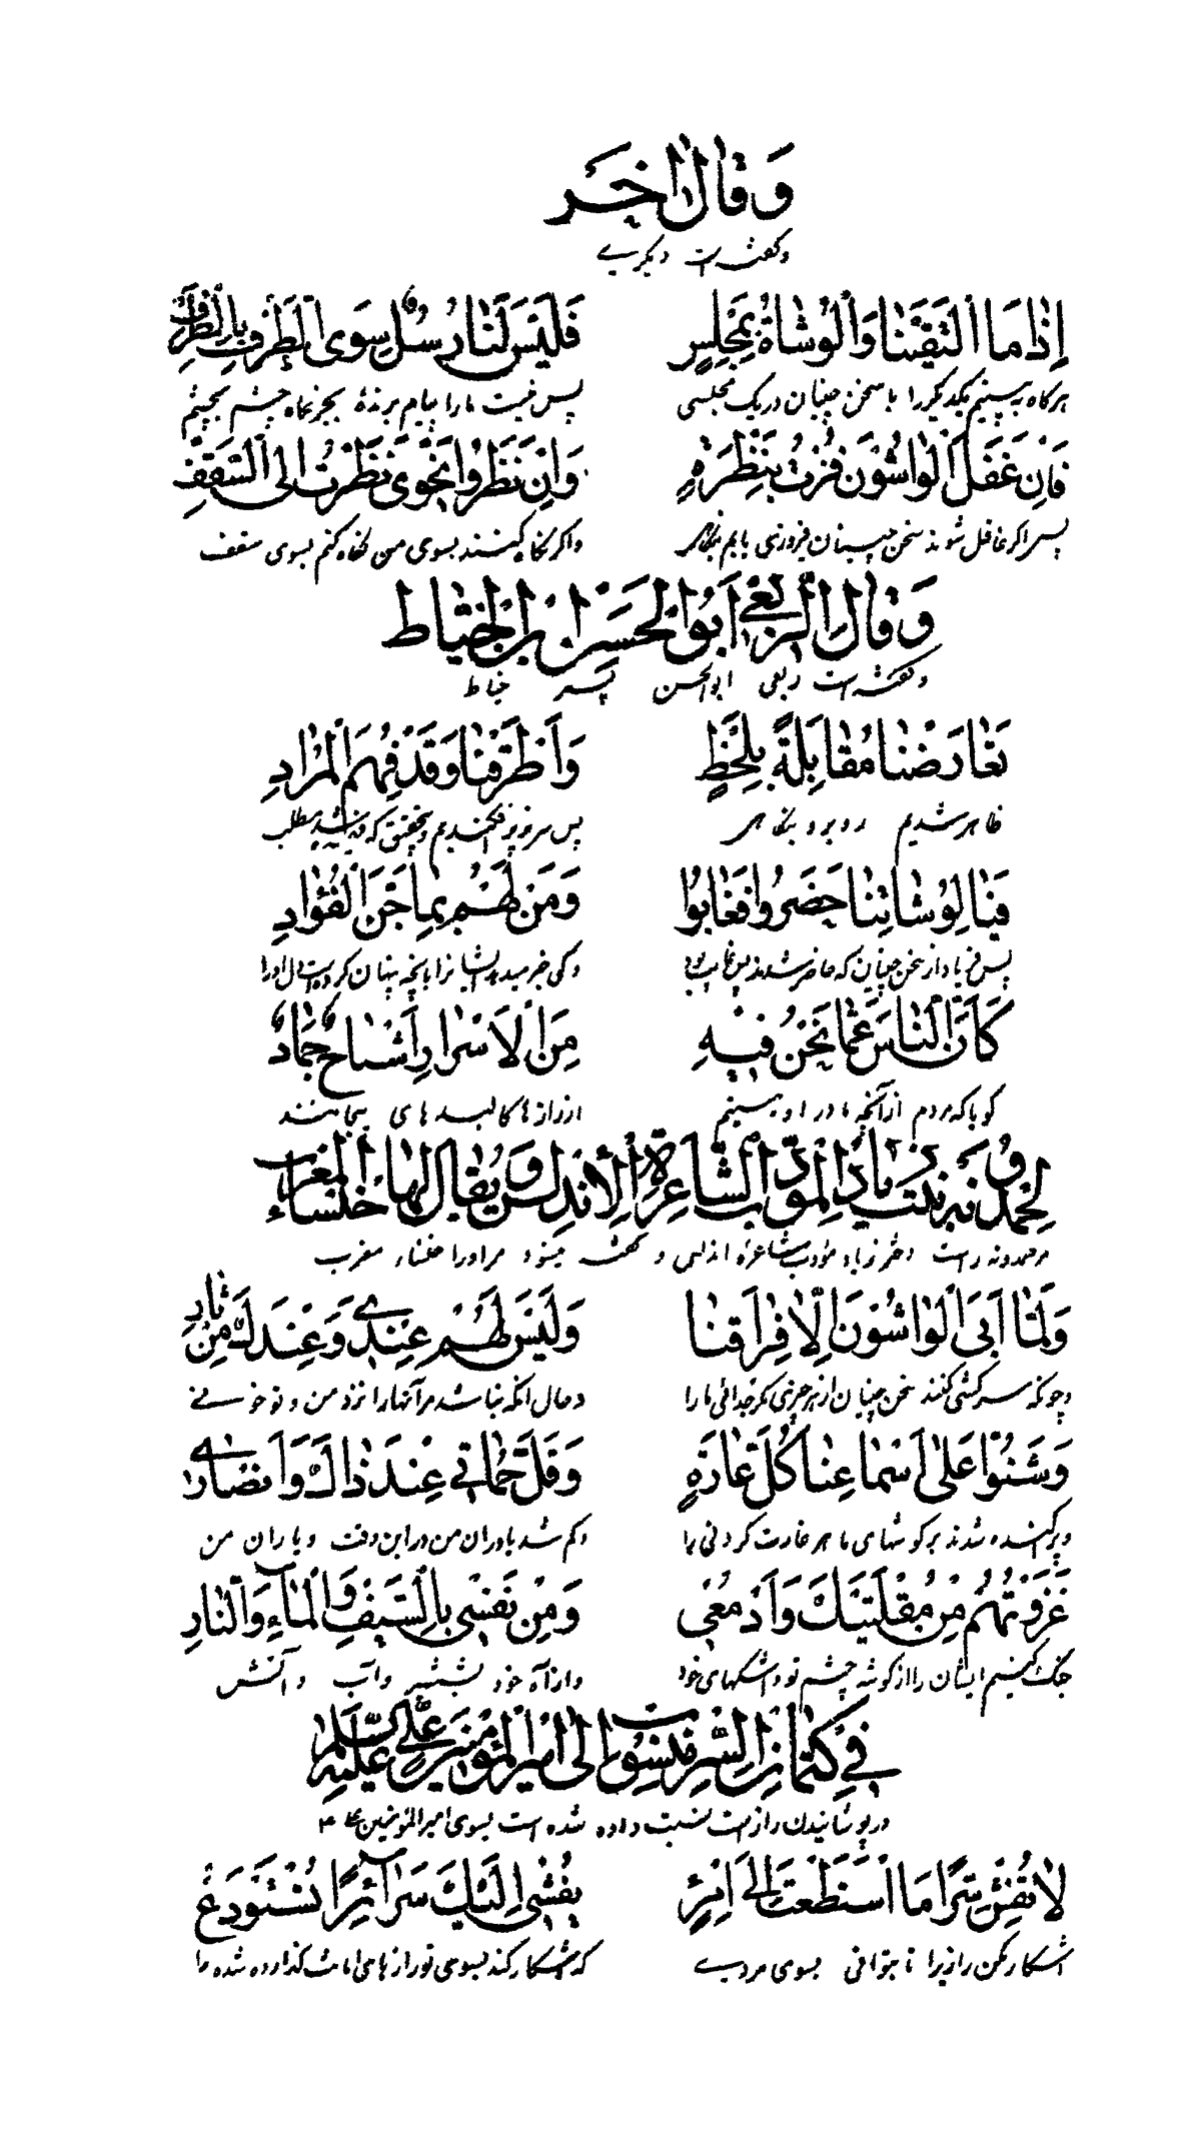 وَقَالَ اٰخَر
و گفته است دیگری
اِذٰا مَا الْتَقَيْنٰا وَالْوُشاةُ بِمَجْلِسٍ فَلَيْسَ لَنٰا رُسُلٌ سِوَى الطَّرْفِ بِالطَّرْفِ
هر گاه ببینیم یکدیگر را با سخن چینان در یک مجلسی پس نیست ما را پیام برندهٔ بجز نگاه چشم بچشم
فَاِنْ غَفَلَ الْوٰاشُونَ فُزْتُ بِنَظْرَةٍ وَاِنْ نَظَرُوا نَحْوى نَظَرْتُ اِلَى السَّقْفِ
پس اگر غافل شوند سخن چینان فیروزی یابم بنگاهی و اگر نگاه کنند بسوی من نگاه کنم بسوی سقف
وَقَالَ الرَّبَعِىُّ اَبُو الْحَسَنِ ابْنُ الْخَيّٰاط
و گفته است ربعی ابوالحسن پسر خیاط
تَعٰارَضْنٰا مُقٰابَلَةً بِلَحْظٍ وَاَطْرَقْنٰا وَقَدْ فُهِمَ الْمُرٰادِ
ظاهر شدیم روبرو بنگاهی پس سر فرو فکندیم و بتحقیق که فهمیده شد مطلب
فَيٰا لِوُشٰاتِنٰا حَضَرُوا فَغٰابُوا وَمَنْ لَهُمْ بِمٰا جَنَّ الْفُؤٰادِ
پس فریاد از سخن چینان که حاضر شدند پس غایب و کی خبر میدهد ایشانرا بانچه پنهان کرده است دل او را
كَاَنَّ النّٰاسَ عَمّٰا نَحْنُ فيٖهِ مِنَ الْاَسْرٰارِ اَشْبٰاحٌ جَمٰادٌ
گویا که مردم از آنچه ما در او هستیم از رازها کالبدهای بیجانند
لِحَمْدُونَةَ بِنْتِ زِيٰادٍ الْمُؤَدِّبِ الشّٰاعِرَةِ الْاَنْدَلُسِ وَيُقٰالُ لَهٰا خَنْسٰاءُ الْمَغْرِبِ
مر حمدونه راست دختر زیاد مؤدب شاعره اندلسی و گفته میشود مر او را خنساء مغرب
وَلَمّٰا اَبَى الْوٰاشُونَ اِلّٰا فِرٰاقَنٰا وَلَيْسَ لَهُمْ عِنْدى وَعِنْدَكَ مِنْ ثٰارِ
و چونکه سرکشی کنند سخن چینان از هر چیزی مگر جدائی ما را و حال انکه نباشد مر آنها را نزد من و تو خونی
وَشَنُّوا عَلىٰ اَسْمٰاعِنٰا كُلَّ غٰارَةٍ وَقَلَّ حُمٰاتى عِنْدَ ذٰاكَ وَاَنْصٰارى
و پراکنده شدند بر گوشهای ما هر غارت کردنی را و کم شد یاوران من در این وقت و یاران من
غَزَوْتُهُمْ مِنْ مُقْلَتَيْكَ وَاَدْمُعى وَمِنْ نَفَسى بِالسَّيْفِ وَالْمٰاءِ وَالنّٰارِ
جنگ کنیم ایشان را از گوشه چشم تو و اشکهای خود و از آه خود بشمشیر و آب و آتش
فى كِتْمٰانِ السِّرِّ مَنْسُوبٌ اِلىٰ اَميرِ الْمُؤْمِنينَ عَلِىٍّ عَلَيْهِ السَّلٰامُ
در پوشانیدن راز است نسبت داده شده است بسوی امیرالمؤمنین علی ع م
لٰا تُفْشِ سِرًّا مَا اسْتَطَعْتَ اِلىٰ امْرِئٍ يُفْشى اِلَيْكَ سَرٰآئِرًا تُسْتَوْدَعُ
اشکار مکن رازیرا تا بتوانی بسوی مردی که اشکار کند بسوی تو رازهای امانت گذارده شده را